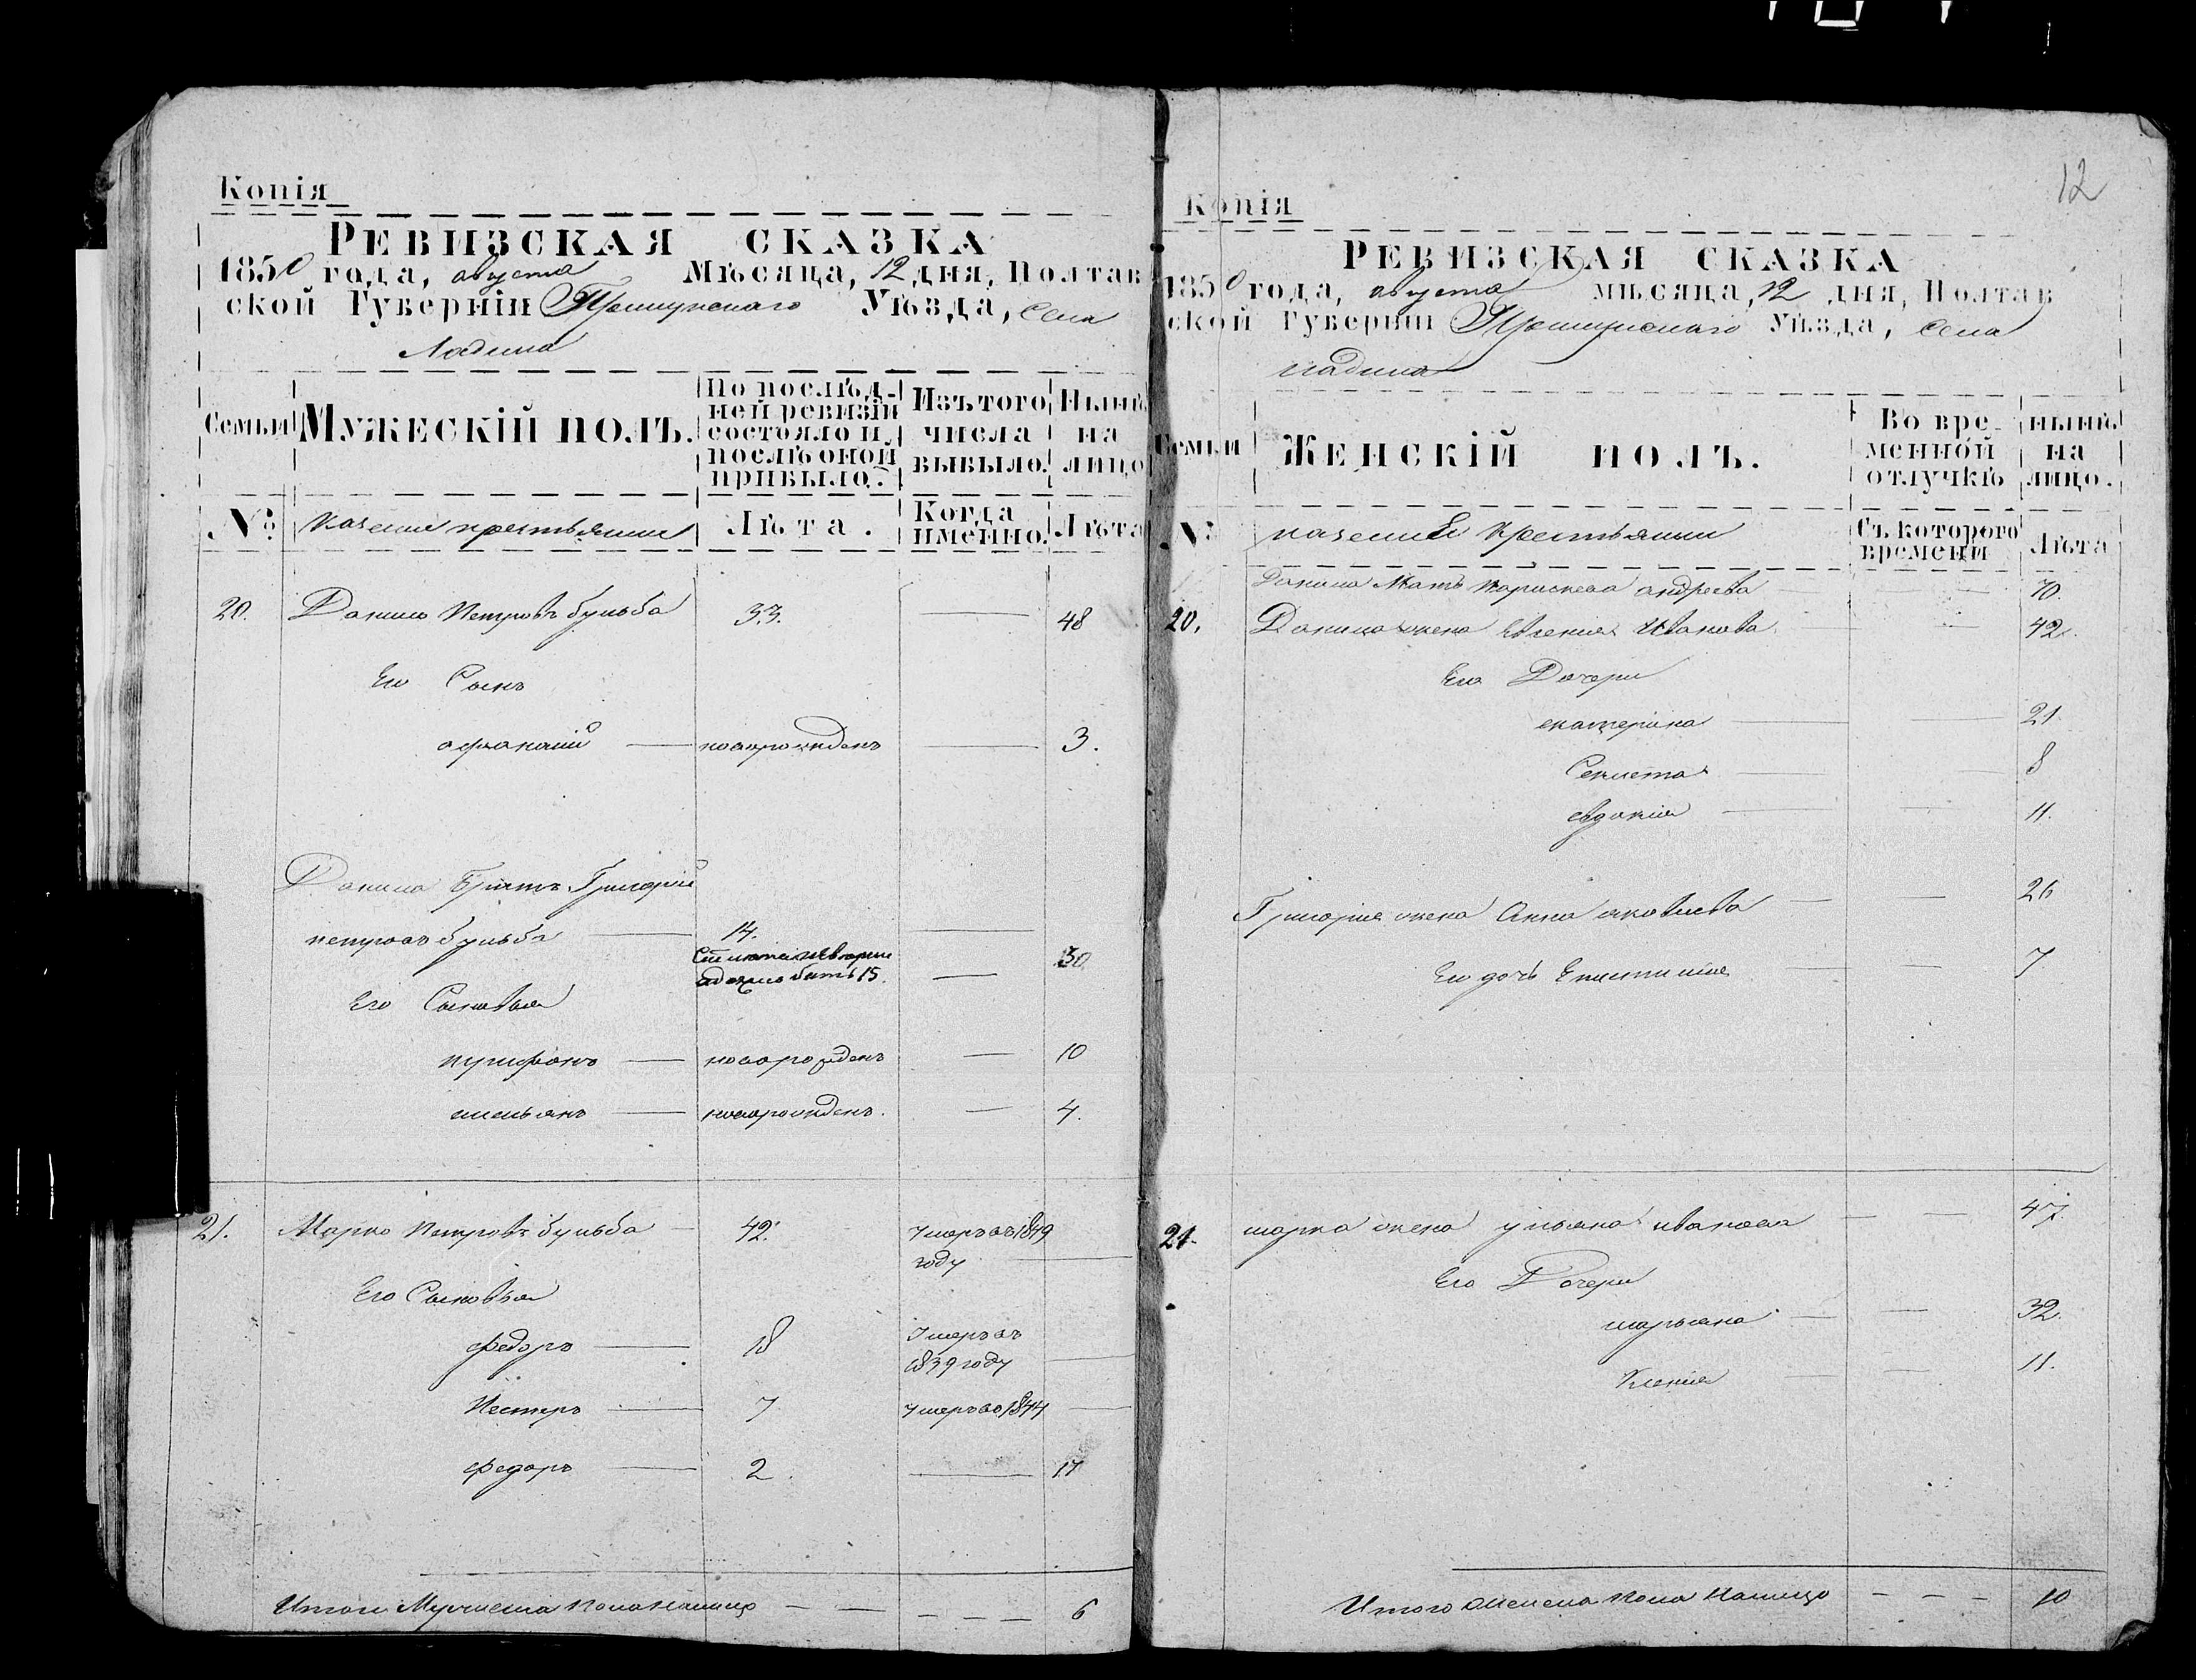 Копія
РЕВИЗСКАЯ СКАЗКА
1850 года, августа Мѣсяца, 12 дня, Полтав
ской Губерніи Прилуцкаго Уѣзда, Села
Ладина
Семьи
МУЖЕСКІЙ ПОЛЪ.
По послѣд-
ней ревизіи
состояло и
послѣ оной
прибыло.
Изъ того
числа
выбыло.
Нынѣ
на
лицо
№
Казенные крестьяне
Лѣта.
Когда
именно.
Лѣта
20. Данило Петровъ бульба 33. 48
Его Сынъ
афанасій новорожденъ 3.
Данила Братъ Григорій
петровъ бульба 14.
15. 30
Его Сыновья
трифонъ новорожденъ 10
емельянъ новорожденъ. 4.
21. Марко Петровъ бульба 42. умеръ въ 1849
году
Его Сыновья
федоръ 18 Умеръ въ
1839 году
Нестеръ 7 умеръ въ 1844
федоръ 2. 17
Итого Мужеска пола налицо 6
12
Копія
РЕВИЗСКАЯ СКАЗКА
1850 года, августа мѣсяца, 12 дня, Полтав
ской Губерніи Прилуцкаго Уѣзда, Села
ладина
Семьи
ЖЕНСКІЙ ПОЛЪ.
Во вре-
менной
отлучкѣ
нынѣ
на
лицо.
№
казенные Крестьяне
Съ котораго
времени
Лѣта
Данила Мать андреева 70.
20. Данила жена Евгенія Иванова 42.
Его Дочери
екатерина 21
8
евдокія 11.
Григорія жена Анна яковлева 26
Его дочь 7
21. марка жена ульяна иванова 47.
Его Дочери
марьяна 32.
11.
Итого женска пола налицо 10